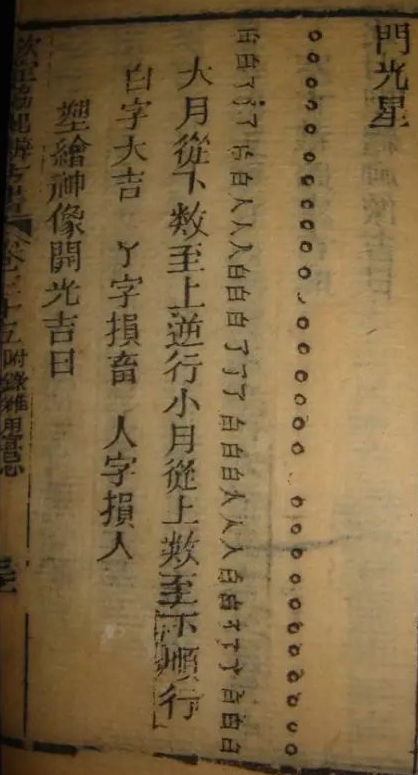 門光星
○○○○○○○○○○○○○○○○○○○○○○○○○○○○○○
白白丫丫丫白白人人人白白白丫丫丫白白白人人人白白丫丫丫白白白
大月從下數至上逆行小月從上數至下順行
白字大吉 丫字損畜 人字損人
塑繪神像開光吉日
欽定協紀辨方書 卷三十五 附錄雜用宜忌